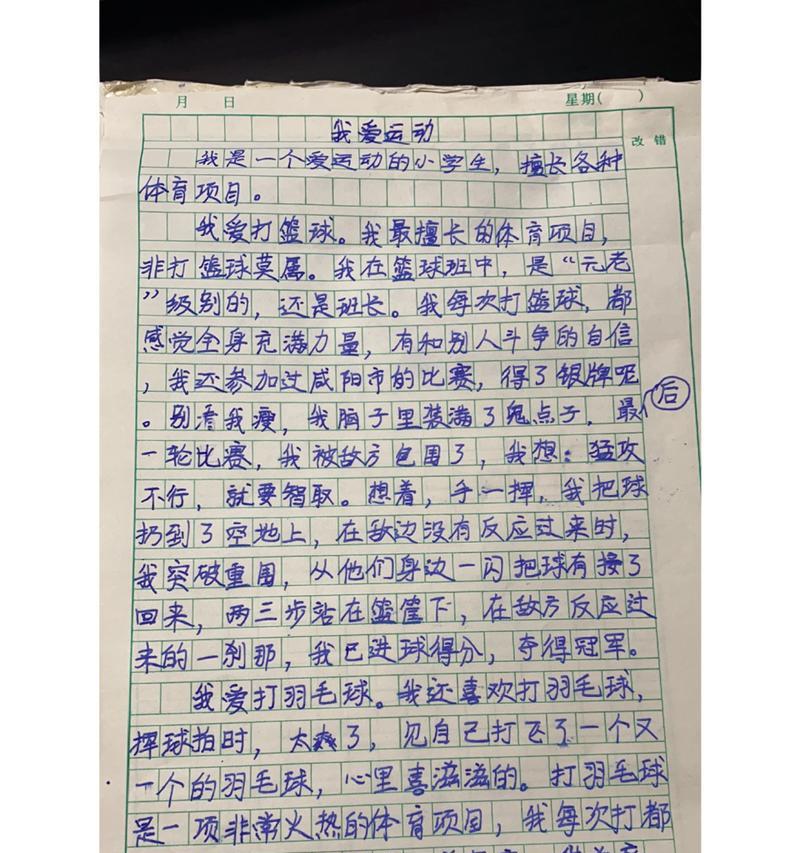 月 日 星期( )
我爱运动
改错
我是一个爱运动的小学生，擅长各种
体育项目。
我爱打篮球。我最擅长的体育项目，
非打篮球莫属。我在篮球班中，是“元老
”级别的，还是班长。我每次打篮球，都
感觉全身充满力量，有和别人斗争的自信
，我还参加过咸阳市的比赛，得了银牌呢
。别看我瘦，我脑子里装满了鬼点子，最后
一轮比赛，我被敌方包围了，我想：猛攻
不行，就要智取。想着，手一挥，我把球
扔到了空地上，在敌边没有反应过来时，
我突破重围，从他们身边一闪把球有接了
回来，两三步站在篮筐下，在敌方反应过
来的一刹那，我已进球得分，夺得冠军。
我爱打羽毛球。我还喜欢打羽毛球，
挥球拍时，太爽了，见自己打飞了一个又
一个的羽毛球，心里喜滋滋的。打羽毛球
是一项非常火热的体育项目，我每次打都